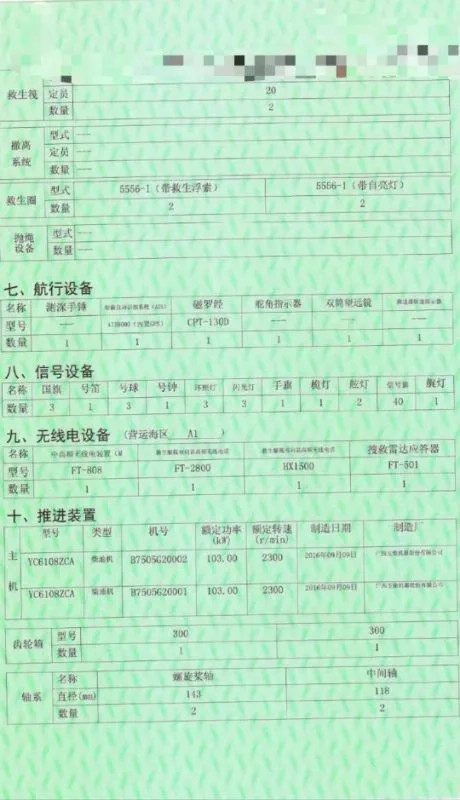 救生筏 定员 20
数量 2
撤离系统 型式 ---
定员 ---
数量 ---
救生圈 型式 5556-1（带救生浮索） 5556-1（带自亮灯）
数量 2 2
抛绳设备 型式 ---
数量 ---
七、航行设备
名称 测深手锤 船载自动识别系统(AIS) 磁罗经 舵角指示器 双筒望远镜
型号 --- (内置GPS) CPT-130D --- --- ---
数量 1 1 1 1 1 1
八、信号设备
名称 国旗 号笛 号球 号钟 环照灯 闪光灯 手旗 桅灯 舷灯 信号旗 艉灯
数量 3 1 3 1 3 3 1 1 2 40 1
九、无线电设备 (营运海区 A1 )
名称 中高频无线电装置（M 救生艇筏双向甚高频无线电话 救生艇筏双向甚高频无线电话 搜救雷达应答器
型号 FT-808 FT-2800 HX1500 FT-501
数量 1 1 1 1
十、推进装置
主机 型号 类型 机号 额定功率(kW) 额定转速(r/min) 制造日期 制造厂
YC6108ZCA 柴油机 B7505G20002 103.00 2300 2016年09月09日 广西玉柴机器股份有限公司
YC6108ZCA 柴油机 B7505G20001 103.00 2300 2016年09月09日 广西玉柴机器股份有限公司
齿轮箱 型号 300 300
数量 1 1
轴系 名称 螺旋桨轴 中间轴
直径(mm) 143 118
数量 2 2